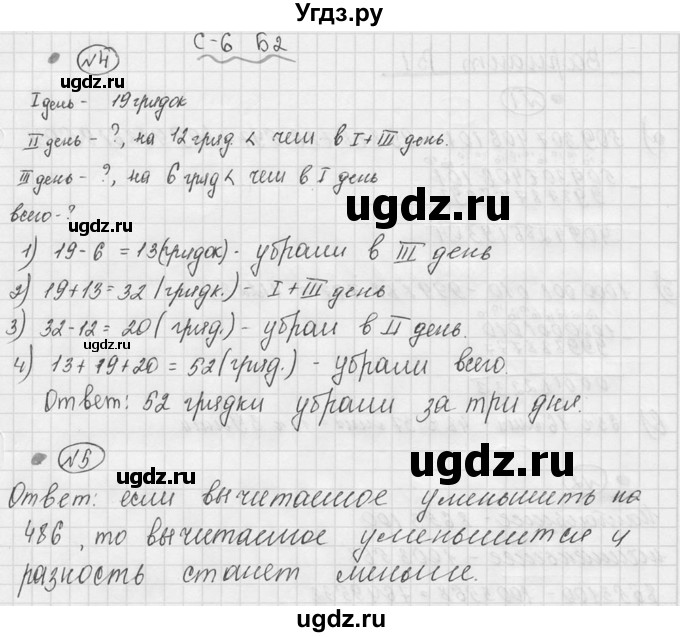 Угдз.ру
С-6 Б2
№4
I день - 19 грядок
II день - ?, на 12 гряд. < чем в I + III день.
III день - ?, на 6 гряд < чем в I день
всего - ?
1) 19 - 6 = 13 (грядок) - убрали в III день
2) 19 + 13 = 32 (грядк.) - I + III день
3) 32 - 12 = 20 (гряд.) - убрали в II день.
4) 13 + 19 + 20 = 52 (гряд.) - убрали всего.
Ответ: 52 грядки убрали за три дня.
№5
Ответ: если вычитаемое уменьшить на
486, то вычитаемое уменьшится и
разность станет меньше.
ugdz.ru
ugdz.ru
ugdz.ru
ugdz.ru
ugdz.ru
ugdz.ru
ugdz.ru
ugdz.ru
ugdz.ru